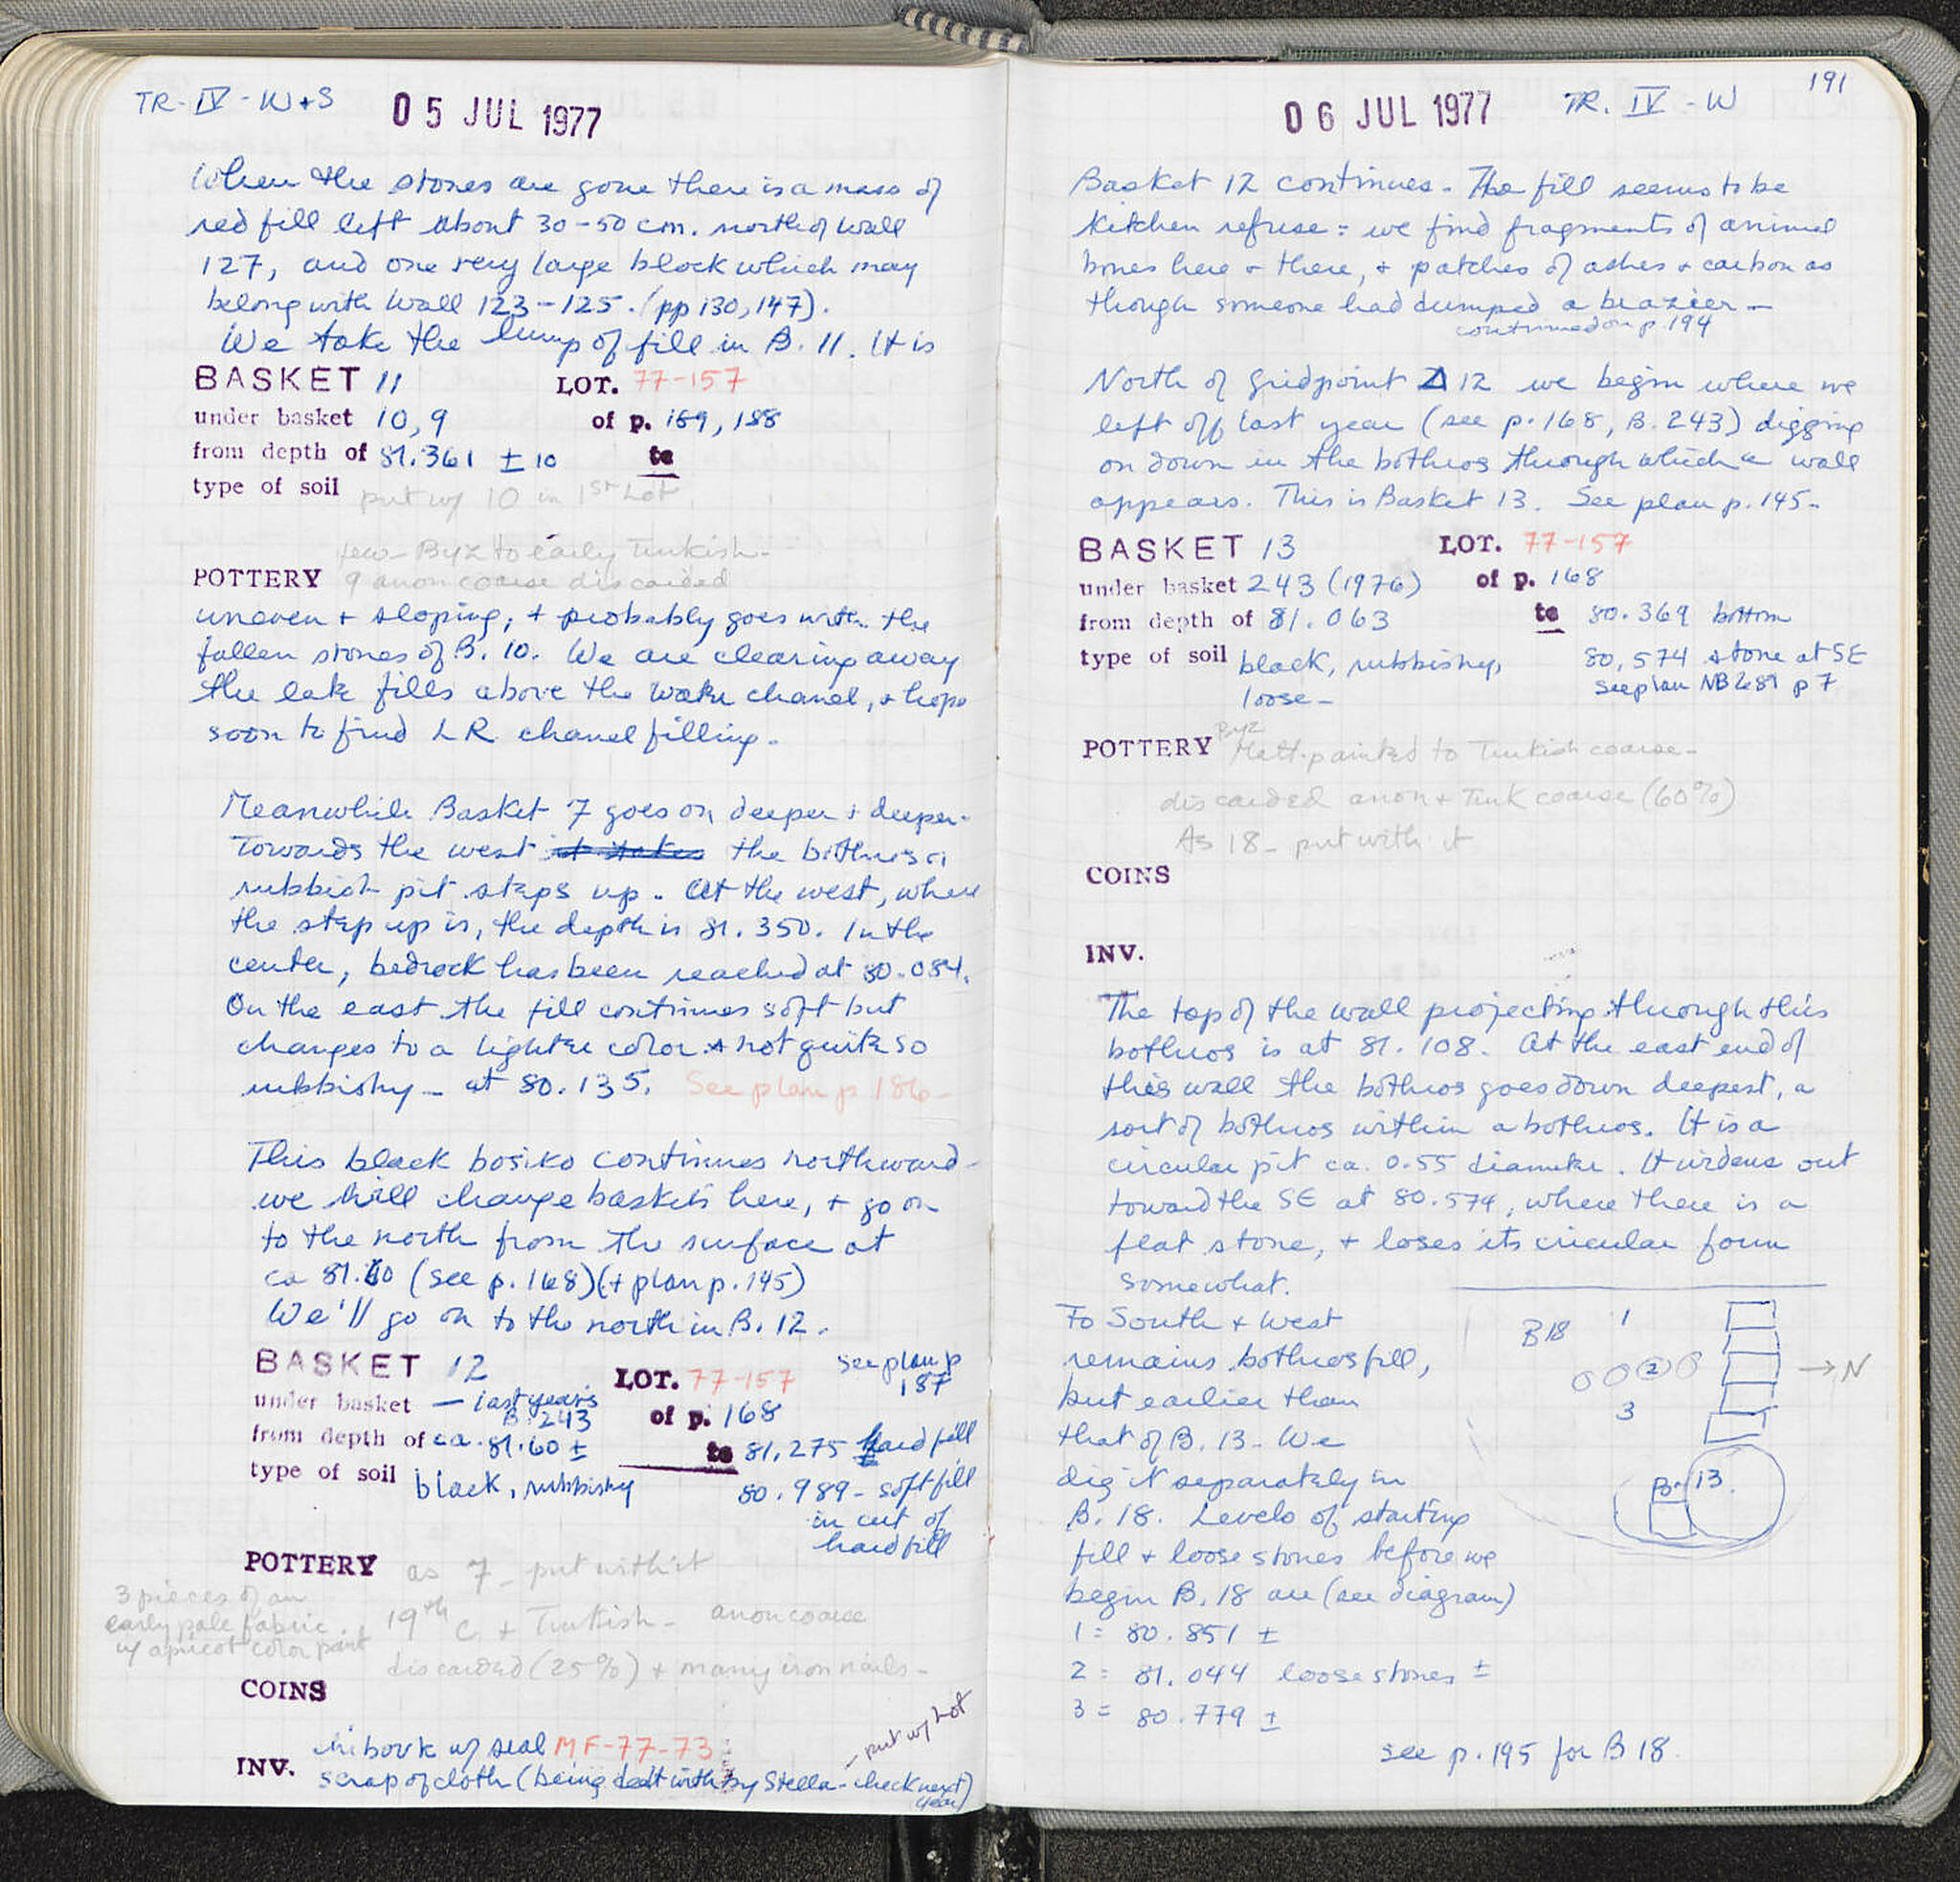 TR-IV-W+S
05 JUL 1977
When the stones are gone there is a mass of
red fill left about 30-50 cm. north of wall
127, and one very large block which may
belong with Wall 123-125. (pp 130, 147).
We take the lump of fill in B. 11. It is
BASKET 11 LOT. 77-157
under basket 10, 9 of p. 189, 188
from depth of 81.361 ± 10 to
type of soil put w/ 10 in 1st Lot
few - Byz to early Turkish -
POTTERY 9 anon coarse discarded
uneven + sloping, + probably goes with the
fallen stones of B. 10. We are clearing away
the late fills above the water chanel, + hope
soon to find LR chanel filling.
Meanwhile Basket 7 goes on deeper + deeper.
Towards the west the bothros or
rubbish pit steps up. At the west, where
the step up is, the depth is 81.350. In the
center, bedrock has been reached at 80.084.
On the east the fill continues soft but
changes to a lighter color + not quite so
rubbishy - at 80.135. See plan p 186-
This black bosiko continues northward -
we will change baskets here, + go on
to the north from the surface at
ca 81.60 (see p. 168) (+ plan p. 145)
We'll go on to the north in B. 12.
BASKET 12 LOT. 77-157 see plan p 187
under basket — last year's B. 243 of p. 168
from depth of ca. 81.60 ± to 81,275 hard fill
type of soil black, rubbishy 80.989 - soft fill
in cut of
hard fill
POTTERY as 7 - put with it
3 pieces of an
early pale fabric
w/ apricot color paint
19th c. + Turkish - anon coarse
discarded (25%) + many iron nails -
COINS
INV. chibouk w/ seal MF-77-73
scrap of cloth (being dealt with by Stella - check next year)
- put w/ Lot
191
06 JUL 1977 TR. IV - W
Basket 12 continues. The fill seems to be
kitchen refuse: we find fragments of animal
bones here + there, + patches of ashes + carbon as
though someone had dumped a brazier -
continued on p. 194
North of gridpoint Δ 12 we begin where we
left off last year (see p. 168, B. 243) digging
on down in the bothros through which a wall
appears. This is Basket 13. See plan p. 145.
BASKET 13 LOT. 77-157
under basket 243 (1976) of p. 168
from depth of 81.063 to 80.369 bottom
type of soil black, rubbishy, 80,574 stone at SE
loose - see plan NB 689 p 7
Byz
POTTERY Matt-painted to Turkish coarse -
discarded anon + Turk coarse (60%)
As 18 - put with it
COINS
INV.
The top of the wall projecting through this
bothros is at 81.108. At the east end of
this wall the bothros goes down deepest, a
sort of bothros within a bothros. It is a
circular pit ca. 0.55 diameter. It widens out
toward the SE at 80.574, where there is a
flat stone, + loses its circular form
somewhat.
To South + West
remains bothros fill,
but earlier than
that of B. 13. We
dig it separately in
B. 18. Levels of starting
fill + loose stones before we
begin B. 18 are (see diagram)
1 = 80.851 ±
2 = 81.044 loose stones ±
3 = 80.779 ±
see p. 195 for B 18.
B18
1
2
3
→N
13.